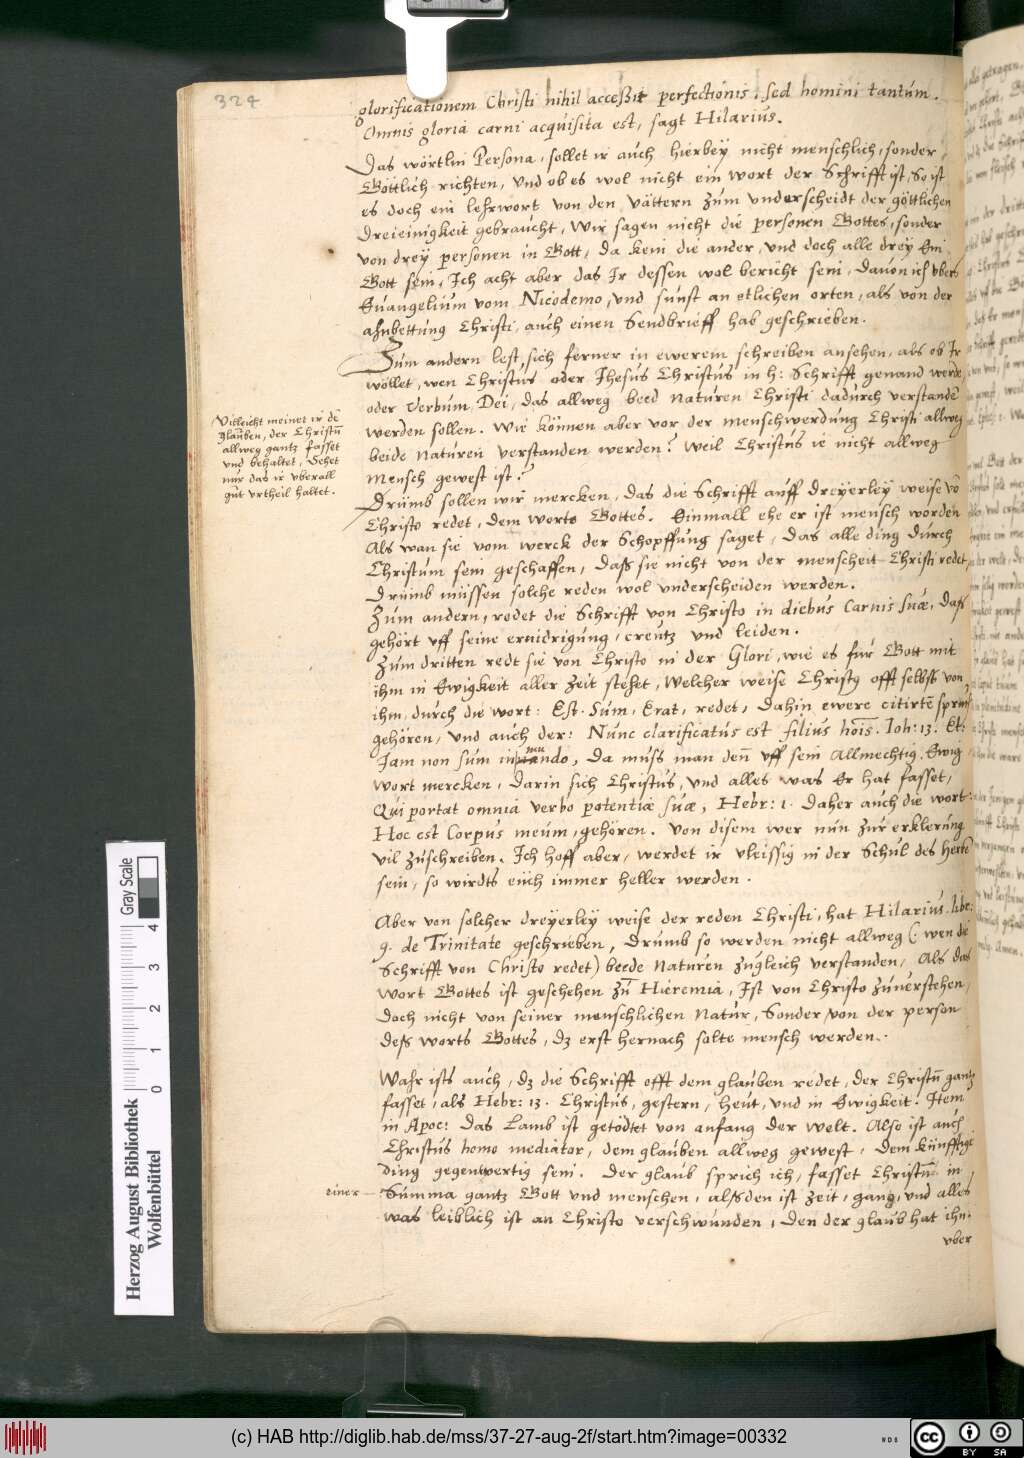 324
glorificationem Christi nihil acceßit perfectionis, sed homini tantum.
Omnis gloria carni acquisita est, sagt Hilarius.
Das wörtlin Persona, sollet ir auch hierbey nicht menschlich, sonder
Göttlich richten, Und ob es wol nicht ein wort der Schrifft ist, So ist
es doch ein lehrwort von den vättern zum underscheidt der göttlichen
Dreieinigkeit gebraucht, Wir sagen nicht die personen Gottes, sonder
von drey personen in Gott, da kein die ander, vnd doch alle drey Ein
Gott sein, Ich acht aber das Ir dessen wol bericht sein, dauon ich vbers
Euangelium vom Nicodemo, vnd sunst an etlichen orten, als von der
ahnbettung Christi, auch einen Sendbrieff hab geschrieben.
Zum andern lest, sich ferner in ewerem schreiben ansehen, als ob Ir
wöllet, wen Christus oder Jhesus Christus in h: Schrifft genand werde
oder Verbum Dei, das allweg beed naturen Christi dadurch verstandē
werden sollen. Wie können aber vor der menschwerdung Christi allweg
beide naturen verstanden werden? Weil Christus ie nicht allweg
Mensch gewest ist?
Villeicht meinet ir dē
glauben, der Christū
allweg gantz fasset
vnd behaltet, Sehet
nur das ir vberall
gut vrtheil haltet.
Drumb sollen wir mercken, das die Schrifft auff dreyerley weise vō
Christo redet, dem worte Gottes. Einmall ehe er ist mensch worden
Als wan sie vom werck der Schopffung saget, das alle ding durch
Christum sein geschaffen, daß sie nicht von der menscheit Christi redet
Drumb müssen solche reden wol vnderscheiden werden.
Zum andern, redet die Schrifft von Christo in diebus Carnis suæ, daß
gehört vff seine ernidrigung, creutz vnd leiden.
Zum dritten redt sie von Christo in der Glori, wie es für Gott mit
ihm in Ewigkeit aller zeit stehet, Welcher weise Christ9 offt selbst von
ihm, durch die wort: Est. Sum, Erat, redet, dahin ewere citirtē sprüch
gehören, vnd auch der: Nunc clarificatus est filius hoīs. Ioh: 13. Et:
Jam non sum in mundo, Da muss man den̄ vff sein Allmechtig. Ewig
Wort mercken, darin sich Christus, vnd alles was Er hat fasset,
Qui portat omnia verbo potentiæ suæ, Hebr: 1. Daher auch die wort:
Hoc est Corpus meum, gehören. Von disem wer nun zur erklerung
vil zuschreiben. Ich hoff aber, werdet ir vleissig in der Schul des herrē
sein, so wirdts euch immer heller werden.
Aber von solcher dreyerley weise der reden Christi, hat Hilarius libr:
9. de Trinitate geschrieben, Drumb so werden nicht allweg (wen die
Schrifft von Christo redet) beede Naturen zugleich verstanden, Als das
Wort Gottes ist geschehen zū Hieremia, Ist von Christo zuuerstehen,
doch nicht von seiner menschlichen Natur, Sonder von der person
deß worts Gottes, dz erst hernach solte mensch werden.
Wahr ists auch, dz die Schrifft offt dem glauben redet, der Christū gantz
fasset, als Hebr: 13. Christus, gestern, heut, vnd in Ewigkeit. Item
in Apoc: Das Lamb ist getödtet von anfang der welt. Also ist auch
Christus homo mediator, dem glauben allweg gewest, dem künfftige
ding gegenwertig sein. Der glaub sprich ich, fasset Christū in
einer
Summa gantz Gott vnd menschen, alßden ist zeit, gang, vnd alles
was leiblich ist an Christo verschwunden, Den der glaub hat ihn.
vber
Herzog August Bibliothek
Wolfenbüttel
0 1 2 3 4
Gray Scale
(c) HAB http://diglib.hab.de/mss/37-27-aug-2f/start.htm?image=00332
WDB
cc BY SA